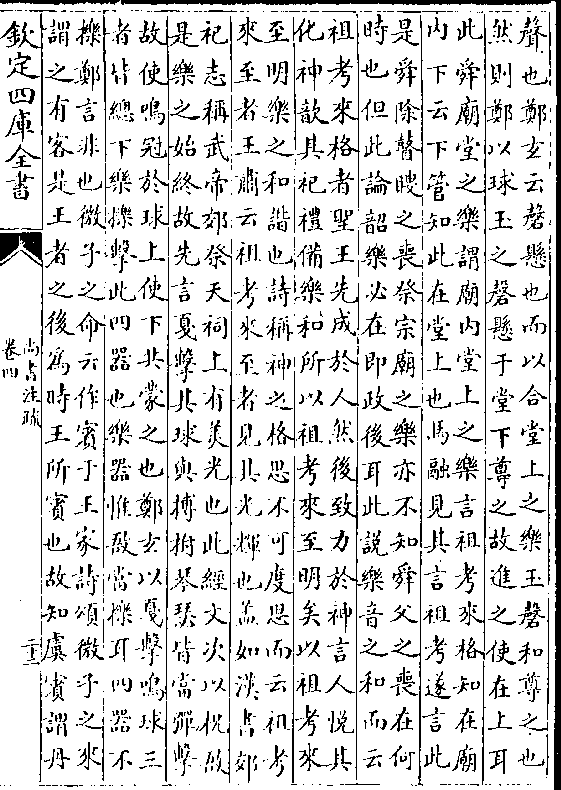 聲也鄭玄云磬懸也而以合堂上之樂玉磬和尊之也
然則鄭以球玉之磬懸于堂下尊之故進之使在上耳
此舜廟堂之樂謂廟内堂上之樂言祖考來格知在廟
内下云下管知此在堂上也馬融見其言祖考遂言此
是舜除瞽瞍之喪祭宗廟之樂亦不知舜父之喪在何
時也但此論韶樂必在即政後耳此説樂音之和而云
祖考來格者聖王先成於人然後致力於神言人悅其
化神歆其祀禮備樂和所以祖考來至明矣以祖考來
至明樂之和諧也詩稱神之格思不可度思而云祖考
來至者王肅云祖考來至者見其光輝也蓋如漢書郊
祀志稱武帝郊祭天祠上有美光也此經文次以柷敔
是樂之始終故先言戛擊其球與搏拊琴瑟皆當彈擊
故使鳴冠於球上使下共蒙之也鄭玄以戛擊鳴球三
者皆總下樂櫟擊此四器也樂器惟敔當櫟耳四器不
櫟鄭言非也微子之命云作賓于王家詩頌微子之來
謂之有客是王者之後為時王所賓也故知虞賓謂丹
欽定四庫全書
尚書注疏
卷四